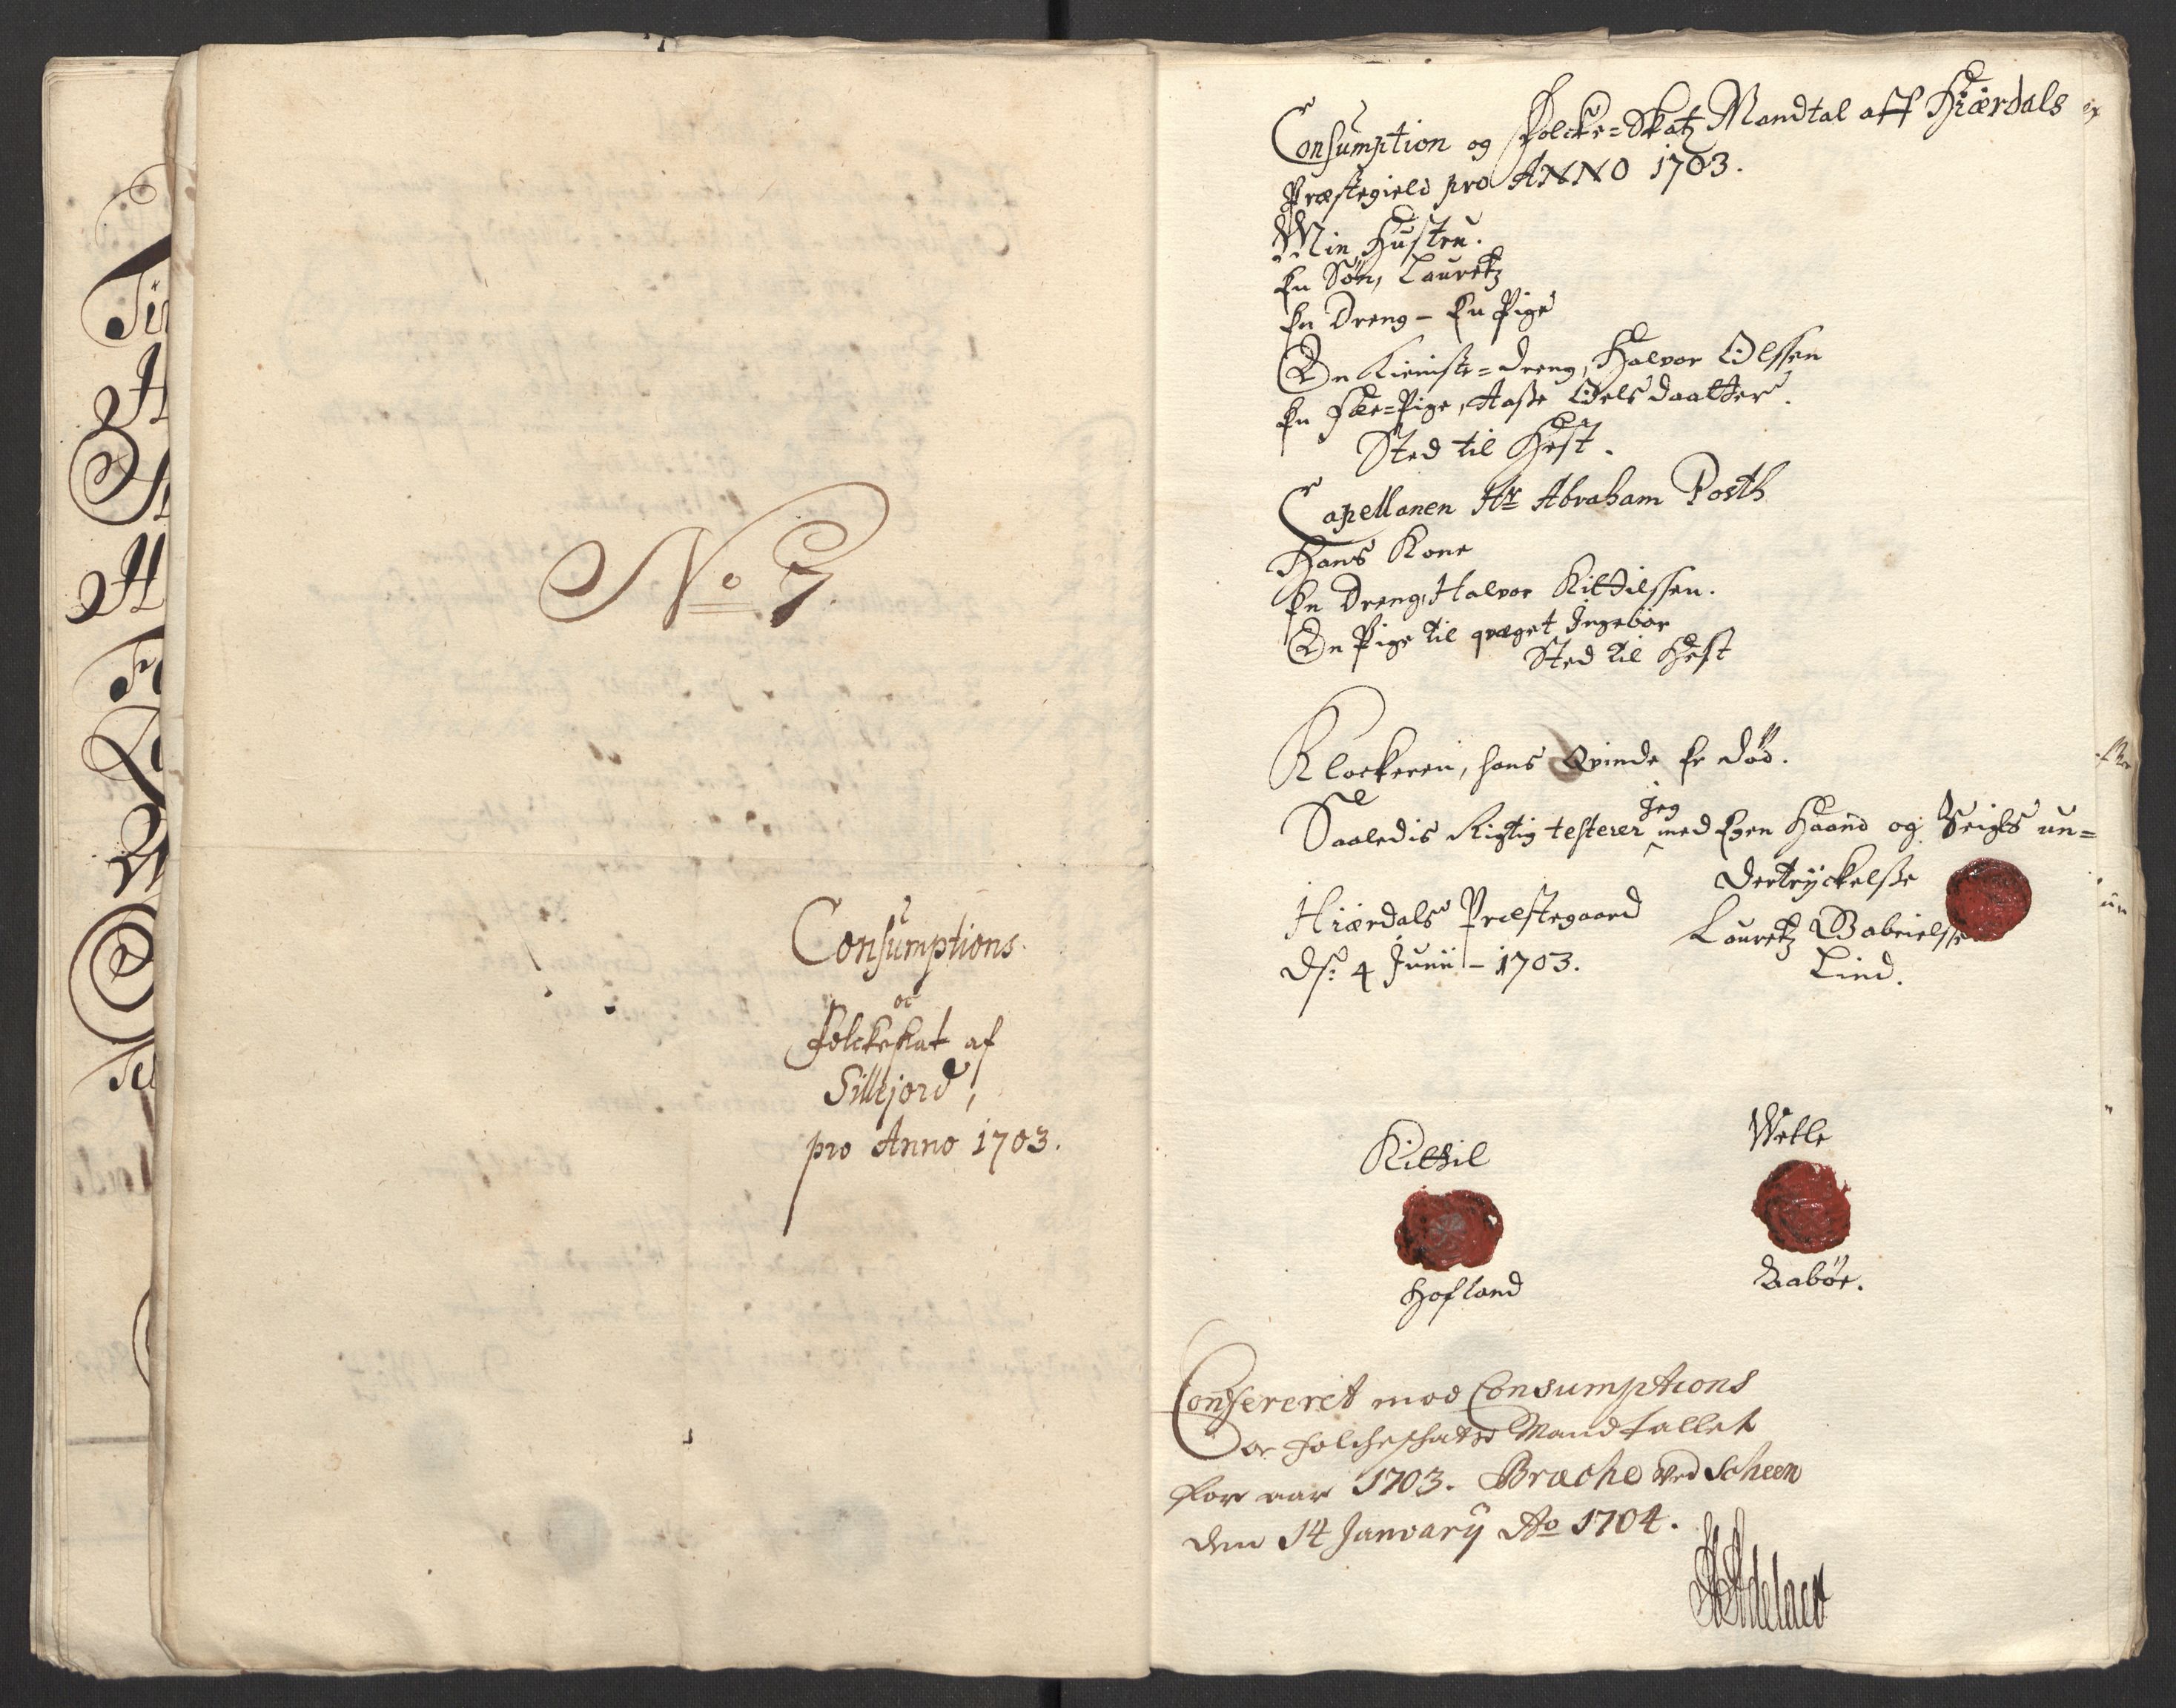 No 7
Consumptions
oc
Folckeskat af
Sillejord,
pro Anno 1703.
Consumption og Folcke-Skatz Mandtal aff Hiærdals
Præstegield pro ANNO 1703.
Min Hustru.
En Søn, Lauretz
En Dreng - En Pige
En Tieniste-dreng, Halvor Olssen
En Fæe-Pige, Aaße Oels daatter.
Sted til Hest.
Capellanen Hr Abraham Posth
Hans Kone
En Dreng, Halvor Kittilssen.
En Pige til qvæget Ingebør
Sted til Hest
Klockeren, hans Qvinde Er död.
Saaledis Rigtig testerer jeg med Egen Haand og Seigls un=
dertryckelße
Hiærdals Præstegaard
Lauretz Gabrielsse
ds: 4 Junii - 1703.
Lind.
Kittil
Wetle
Hofland
Aaböe.
Confereret mod Consumptions
oc Folcheschatts Mandtallet
for aar 1703. Brache ved Scheen
den 14 Januarij Ao 1704.
HAdelaer